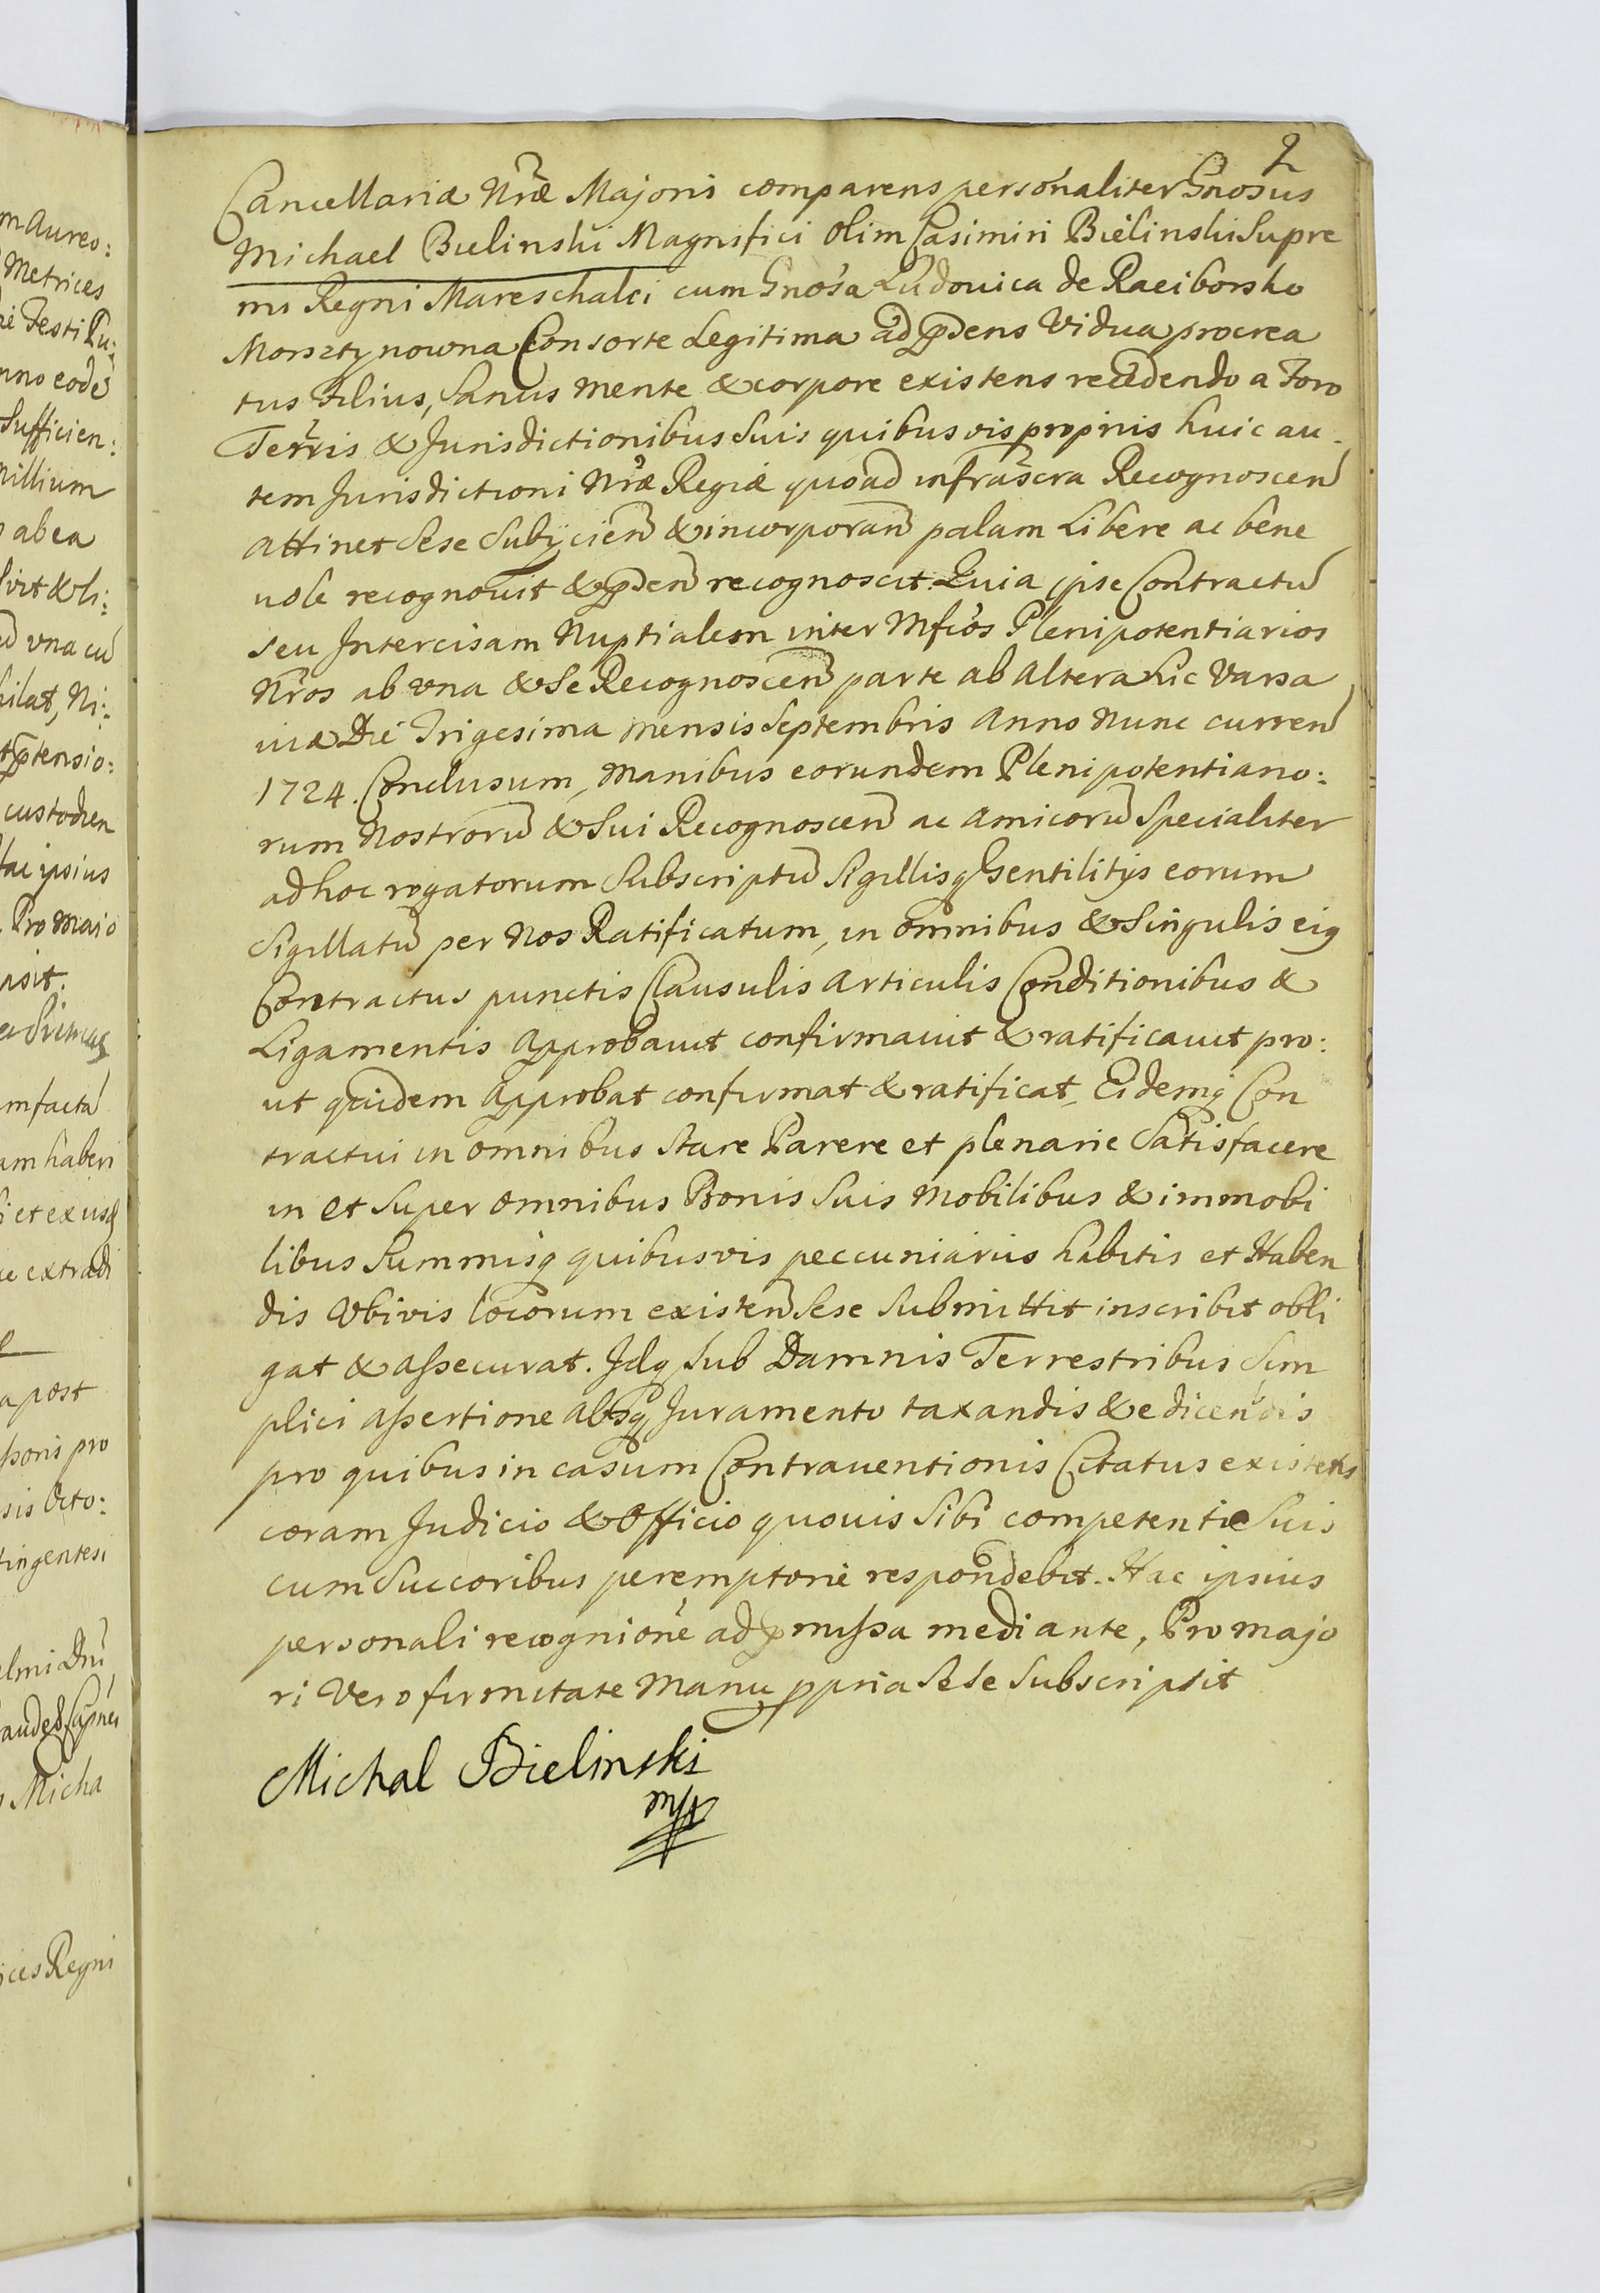 2
Cancellariæ Nræ Majoris comparens personaliter Gnosus
Michael Bielinski Magnifici olim Casimiri Bielinski Supre
mi Regni Mareschalci cum Gnosa Ludovica de Raciborsko
Morsztynowna Consorte Legitima ad pdens Vidua procrea
tus Filius, Sanus mente & corpore existens recedendo a Foro
Terris & Jurisdictionibus Suis quibusvis proprijs huic au
tem Jurisdictioni Nræ Regiæ quoad infrascra Recognoscen
attinet Sese Subijcien & incorporan palam Libere ac bene
uole recognouit & pden recognoscit. Quia ipse Contractu
seu Intercisam Nuptialem inter Mfcos Plenipotentiarios
Nros ab vna & Se Recognoscen parte ab altera hic Varsa
uiæ Die Trigesima mensis Septembris Anno nunc curren
1724. Conclusum, manibus eorundem Plenipotentiario:
rum Nostroru & Sui Recognoscen ac amicoru Specialiter
ad hoc rogatorum Subscriptu Sigillisq Gentilitijs eorum
Sigillatu per Nos Ratificatum, in omnibus & Singulis eig
Contractus punctis Clausulis articulis Conditionibus &
Ligamentis Approbauit confirmauit & ratificauit pro:
ut quidem Approbat confirmat & ratificat, Eidemq Con
tractui in omnibus Stare Parere et plenarie Satisfacere
in et Super omnibus Bonis Suis Mobilibus & immobi
libus Summisq quibusvis peccuniarijs habitis et Haben
dis Vbivis locorum existen Sese Submittit inscribit obli
gat & assecurat. Idq sub Damnis Terrestribus Sim
plici assertione absq Juramento taxandis & edicendis
pro quibus in casum Contrauentionis Citatus existens
coram Judicio & Officio quouis Sibi competenti e Suis
cum Succoribus peremptorie respondebit. Hac ipsius
personali recognione ad pmissa mediante, Pro majo
ri Vero firmitate Manu ppria Sese Subscripsit
Michal Bielinski
mp